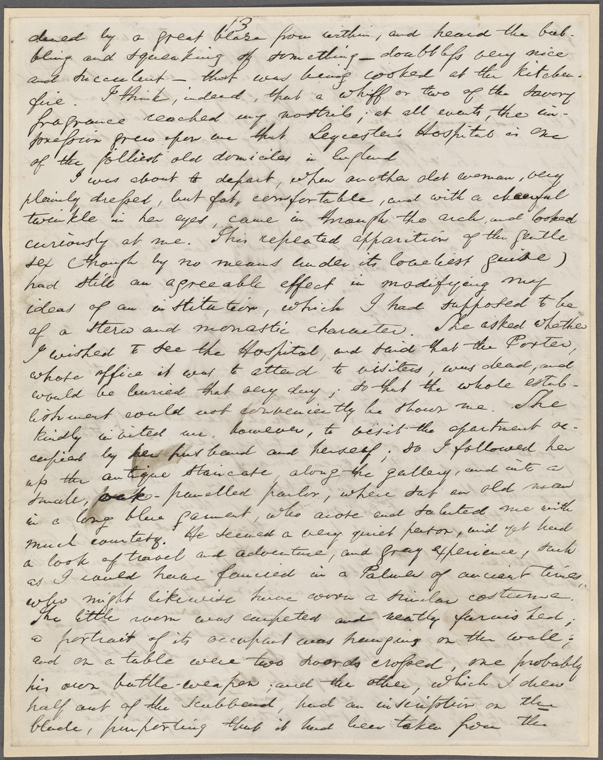 13
dened by a great blaze from within, and heard the bub-
bling and squeaking of something — doubtless very nice
and succulent — that was being cooked at the kitchen-
fire. I think, indeed, that a whiff or two of the savory
fragrance reached my nostrils; at all events, the im-
pression grew upon me that Leycester's Hospital is one
of the jolliest old domiciles in England
I was about to depart, when another old woman, very
plainly dressed, but fat, comfortable, and with a cheerful
twinkle in her eyes, came in through the arch, and looked
curiously at me. This repeated apparition of the gentle
sex (though by no means under its loveliest guise)
had still an agreeable effect in modifying my
ideas of an institution, which I had supposed to be
of a stern and monastic character. She asked whether
I wished to see the Hospital, and said that the Porter,
whose office it was to attend to visitors, was dead, and
would be buried that very day; so that the whole estab-
lishment could not conveniently be shown me. She
kindly invited me, however, to visit the apartment oc-
cupied by her husband and herself; so I followed her
up the antique staircase along the gallery, and into a
small, oak-panelled parlor, where sat an old man
in a long blue garment, who arose and saluted me with
much courtesy. He seemed a very quiet person, and yet had
a look of travel and adventure, and gray experience, such
as I could have fancied in a Palmer of ancient times,
who might likewise have worn a similar costume.
The little room was carpeted and neatly furnished;
a portrait of its occupant was hanging on the wall;
and on a table were two swords crossed, one probably
his own battle-weapon, and the other, which I drew
half out of the scabbard, had an inscription on the
blade, purporting that it had been taken from the